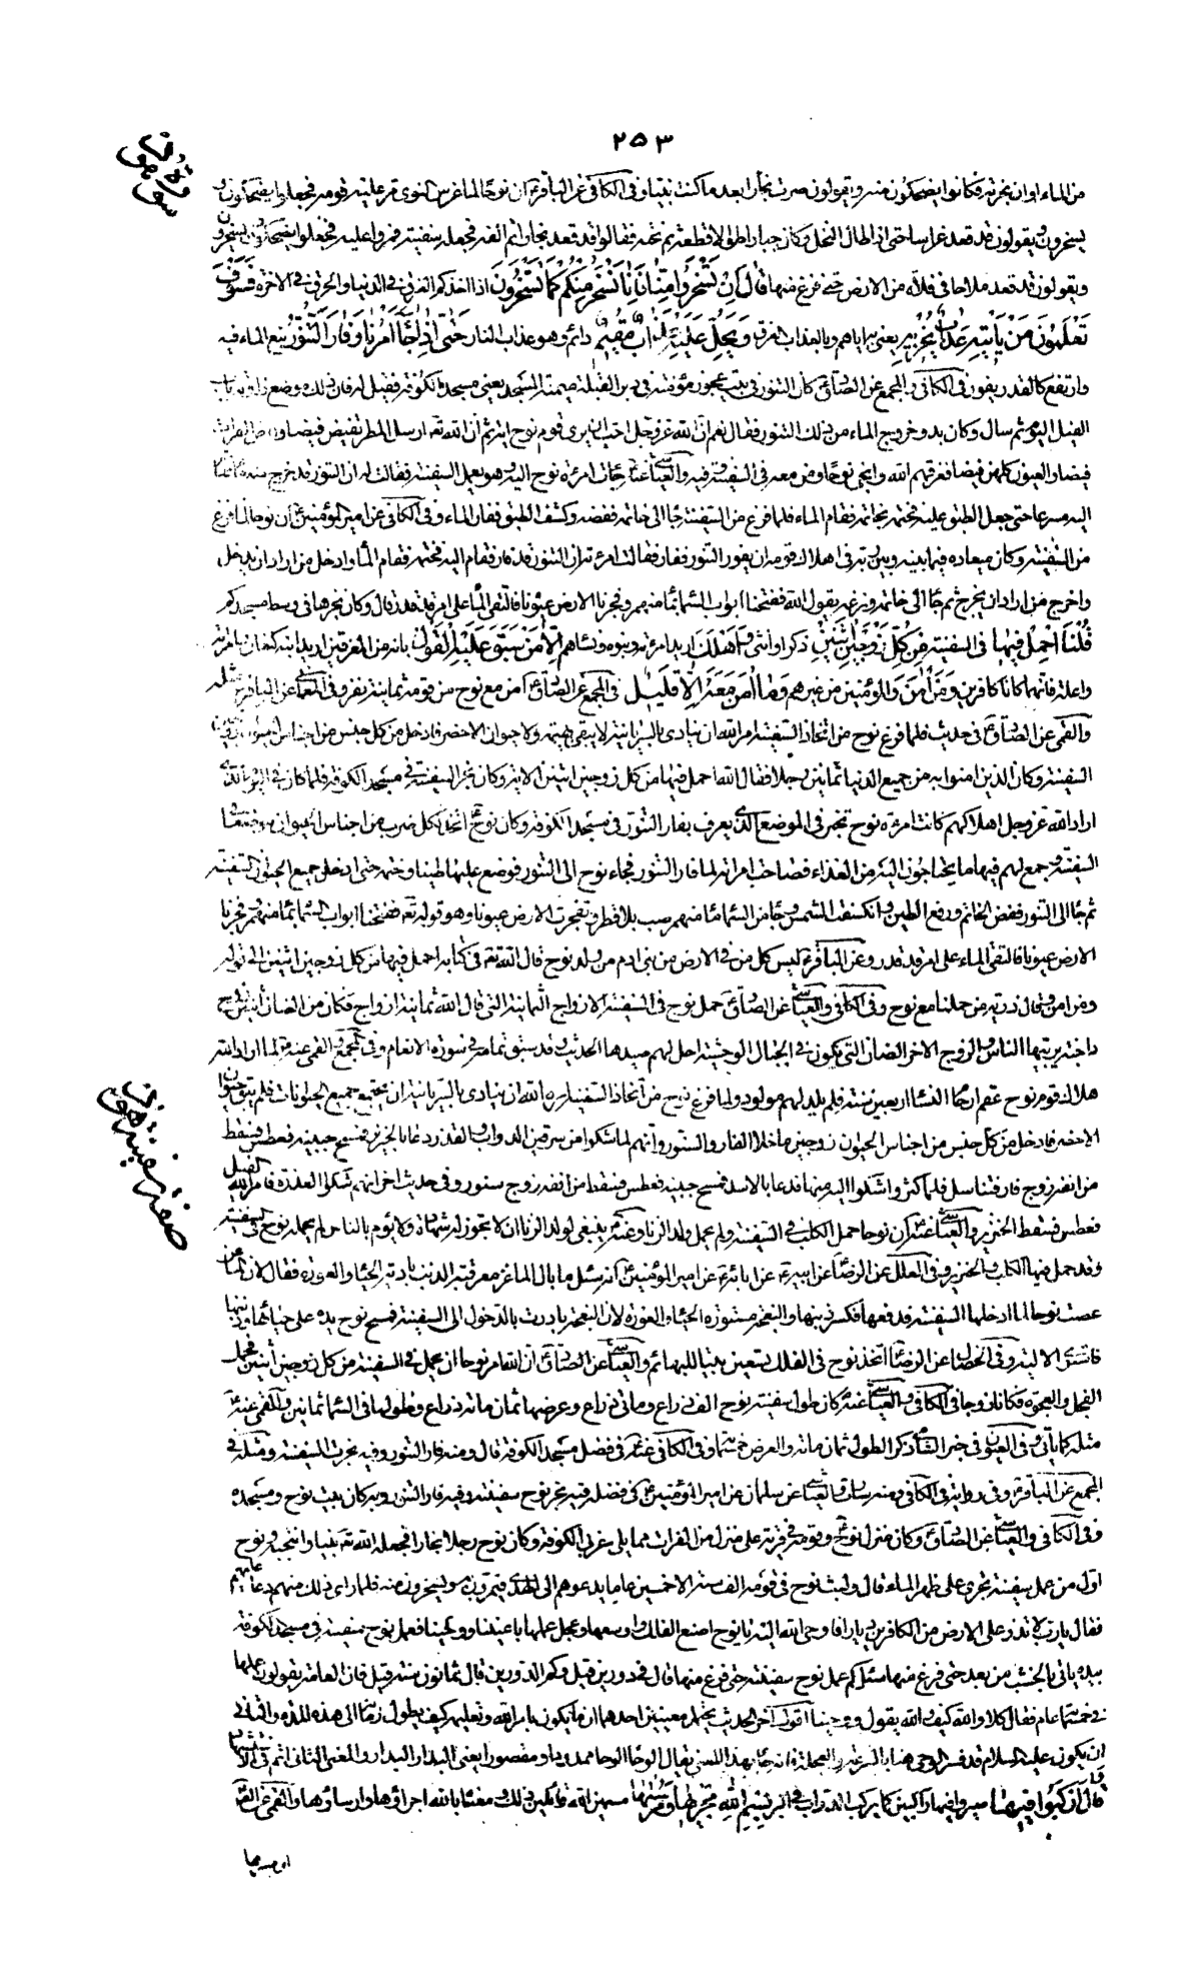 ٢٥٣
سورة هود
من الماء او ان غرته فكانوا يضحكون منه ويقولون صرت نجارا بعد ما كنت نبيا وفي الكافي عن الباقر ان نوحا لما غرس النوى مر عليه قومه فجعلوا يضحكون و
يسخرون ويقولون قد قعد غراسا حتى اذا طال النخل وكان جبارا طوالا قطعه ثم نحته فقالوا قد قعد نجارا ثم الفه فجعله سفينة فمروا عليه فجعلوا يضحكون ويسخرون
ويقولون قد قعد ملاحا في فلاة من الارض حتى فرغ منها قال ان تسخروا منا فانا نسخر منكم كما تسخرون اذا اخذكم الغرق في الدنيا والحرق في الاخرة فسوف
تعلمون من يأتيه عذاب يخزيه يعني به اياهم وبالعذاب الغرق ويحل عليه عذاب مقيم دائم وهو عذاب النار حتى اذا جاء امرنا وفار التنور نبع الماء فيه
وارتفع كالقدر يفور في الكافي والمجمع عن الصادق كان التنور في بيت عجوز مؤمنة في دبر القبلة ميمنة المسجد يعني مسجد الكوفة فقيل له فان ذلك موضع زاوية باب
الفيل اليوم ثم سال وكان بدو خروج الماء من ذلك التنور فقال نعم ان الله عز وجل احب ان يري قوم نوح اية ثم ان الله تعه ارسل المطر يفيض فيضا وفاض الفرات
فيضا والعيون كلهن فيضا فغرقهم الله وانجى نوحا ومن معه في السفينة وفيه والعياشي عنه جاءت امرأة نوح اليه وهو يعمل السفينة فقالت له ان التنور قد خرج منه ماء فقام
اليه مسرعا حتى جعل الطبق عليه فختمه بخاتمه فقام الماء فلما فرغ من السفينة جاء الى خاتمه ففضه وكشف الطبق ففار الماء وفي الكافي عن امير المؤمنين ان نوحا لما فرغ
من السفينة وكان ميعاده فيما بينه وبين ربه في اهلاك قومه ان يفور التنور ففار فقالت امرأته ان التنور قد فار فقام اليه فختمه فقام الماء وادخل من اراد ان يدخل
واخرج من اراد ان يخرج ثم جاء الى خاتمه ونزعه يقول الله ففتحنا ابواب السماء بماء منهمر وفجرنا الارض عيونا فالتقى الماء على امر قد قدر قال وكان نجرها في وسط مسجدكم
قلنا احمل فيها في السفينة من كل زوجين اثنين ذكرا وانثى واهلك اريد امرأته وبنوه ونساؤهم الا من سبق عليه القول بانه من المغرقين اريد ابنه كنعان وامرأته
واعلة فانهما كانا كافرين ومن آمن والمؤمنين من غيرهم وما آمن معه الا قليل في المجمع عن الصادق آمن مع نوح من قومه ثمانية نفر وفي المعاني عن الباقر مثله
والقمي عن الصادق في حديث فلما فرغ نوح من اتخاذ السفينة امر الله ان ينادي بالسريانية لا يبقى بهيمة ولا حيوان الا حضر فادخل من كل جنس من اجناس الحيوان زوجين
السفينة وكان الذين امنوا به من جميع الدنيا ثمانين رجلا فقال الله احمل فيها من كل زوجين اثنين الاية وكان نجر السفينة في مسجد الكوفة فلما كان في اليوم الذي
اراد الله عز وجل اهلاكهم كانت امرأة نوح تخبز في الموضع الذي يعرف بفار التنور في مسجد الكوفة وكان نوح اتخذ لكل ضرب من اجناس الحيوان موضعا في
السفينة وجمع لهم فيها ما يحتاجون اليه من الغذاء فصاحت امرأته لما فار التنور فجاء نوح الى التنور فوضع عليها طينا وختمه حتى ادخل جميع الحيوان السفينة
ثم جاء الى التنور ففض الخاتم ورفع الطين وانكسفت الشمس وجاء من السماء ماء منهمر صب بلا قطر وتفجرت الارض عيونا وهو قوله تعه ففتحنا ابواب السماء بماء منهمر وفجرنا
الارض عيونا فالتقى الماء على امر قد قدر وعن الباقر ليس كل من في الارض من بني ادم من ولد نوح قال الله تعه في كتابه احمل فيها من كل زوجين اثنين الى قوله
ومن امن وقال ذرية من حملنا مع نوح وفي الكافي والعياشي عن الصادق حمل نوح في السفينة الازواج الثمانية التي قال الله ثمانية ازواج فكان من الضأن اثنين زوج
داجنة يربيها الناس والزوج الاخر الضأن التي تكون في الجبال الوحشية احل لهم صيدها الحديث وقد سبق تمامه في سورة الانعام وفي المجمع والقمي عنه لما اراد الله
هلاك قوم نوح عقم ارحام النساء اربعين سنة فلم يلد لهم مولود ولما فرغ نوح من اتخاذ السفينة امره الله ان ينادي بالسريانية ان يجتمع جميع الحيوانات فلم يبق حيوان
الا حضر فادخل من كل جنس من اجناس الحيوان زوجين ما خلا الفار والسنور وانهم لما شكوا من سرقين الدواب والقذر دعا بالخنزير فمسح جبينه فعطس فسقط
من انفه زوج فار فتناسل فلما كثر واشكوا اليه منها فدعا بالاسد فمسح جبينه فعطس فسقط من انفه زوج سنور وفي حديث اخر انهم شكوا العذرة فامر الله الفيل
فعطس فسقط الخنزير والعياشي عنه ان نوحا حمل الكلب في السفينة ولم يحمل ولد الزنا وعنه ينبغي لولد الزنا ان لا تجوز له شهادة ولا يؤم بالناس لم يحمله نوح في السفينة
وقد حمل فيها الكلب والخنزير وفي العلل عن الرضا عن ابيه عن ابائه عن امير المؤمنين انه سئل ما بال الماعز معرقبة الذنب بادية الحياء والعورة فقال لان الماعز
عصت نوحا لما ادخلها السفينة فدفعها فكسر ذنبها والنعجة مستورة الحياء والعورة لان النعجة بادرت بالدخول الى السفينة فمسح نوح يده على حياها وذنبها
فاستوت الالية وفي الخصال عن الرضا اتخذ نوح في الفلك تسعين بيتا للبهائم والعياشي عن الصادق ان الله امر نوحا ان يحمل في السفينة من كل زوجين اثنين فحمل
الفحل والعجوة فكانا زوجا في الكافي والعياشي عنه كان طول سفينة نوح الف ذراع ومأتي ذراع وعرضها ثمان مائة ذراع وطولها في السماء ثمانين والقمي عنه
مثله كما يأتي وفي العيون في خبر الشامي ذكر الطول ثمان مائة والعرض خمسمائة وفي الكافي عنه في فضل مسجد الكوفة قال ومنه فار التنور وفيه نجرت السفينة ومثله في
المجمع عن الباقر وفي رواية في الكافي ومنه سارت والعياشي عن سلمان عن امير المؤمنين في فضله فيه نجر نوح سفينته وفيه فار التنور وبه كان بيت نوح ومسجده
وفي الكافي والعياشي عن الصادق وكان منزل نوح وقومه في قرية على منزل من الفرات مما يلي غربي الكوفة وكان نوح رجلا نجارا فجعله الله تعه نبيا وانتجبه ونوح
اول من عمل سفينة تجري على ظهر الماء قال ولبث نوح في قومه الف سنة الا خمسين عاما يدعوهم الى الهدى فيمرون به ويسخرون منه فلما راى ذلك منهم دعا عليهم
فقال يا رب لا تذر على الارض من الكافرين ديارا فاوحى الله اليه يا نوح اصنع الفلك واوسعها وعجل عملها باعيننا ووحينا فعمل نوح سفينته في مسجد الكوفة
بيده يأتي بالخشب من بعد حتى فرغ منها سئل كم عمل نوح سفينته حتى فرغ منها قال في دورين قيل وكم الدورين قال ثمانون سنة قيل فان العامة يقولون عملها
في خمسمائة عام فقال كلا والله كيف والله يقول ووحينا اقول آخر الحديث يحتمل معنيين احدهما ان ما يكون بامر الله وتعليمه كيف يطول زمانه الى هذه المدة والثاني
ان يكون عليه السلام قد فسر الوحي هنا بالسرعة والعجلة فانه جاء بهذا المعنى يقال الوحا الوحا ممدودا ومقصورا يعني البدار البدار والمعنى الثاني اتم في الاستشهاد
وقال اركبوا فيها اي صيروا فيها راكبين كما يركب الدواب في البر بسم الله مجريها ومرسيها مسمين الله قائلين ذلك ومعناه بالله اجراؤها وارساؤها والقمي عن الصادق
صفة سفينة نوح
اي مسيرها